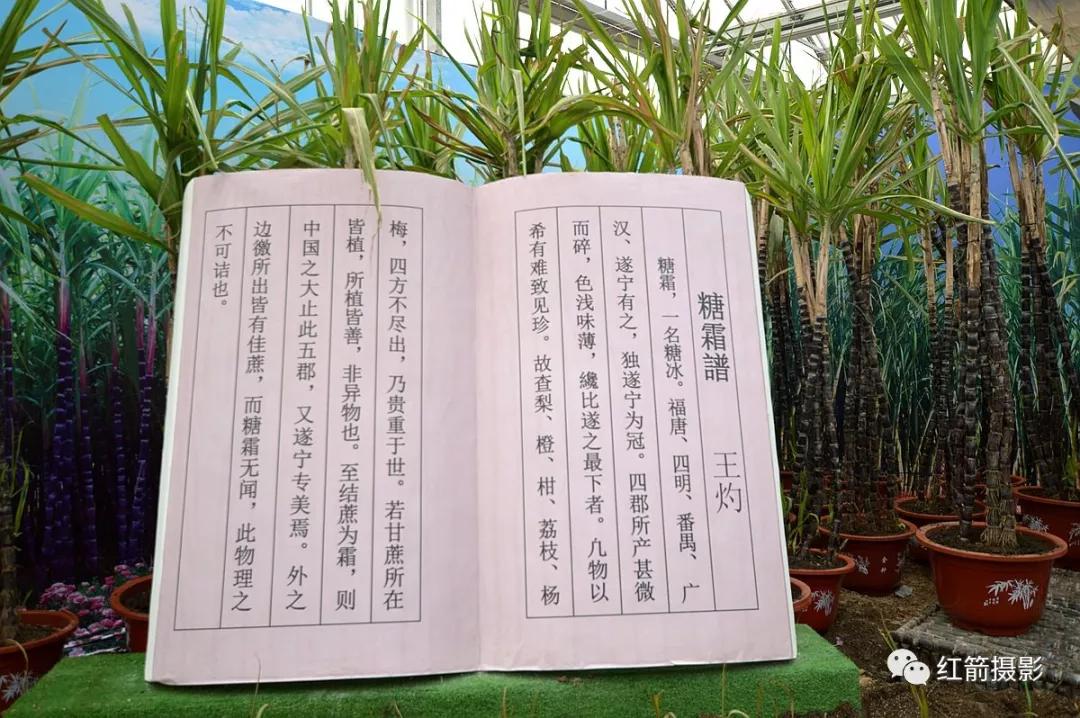 糖霜譜
王灼
糖霜，一名糖冰。福唐、四明、番禺、广
汉、遂宁有之，独遂宁为冠。四郡所产甚微
而碎，色浅味薄，纔比遂之最下者。凡物以
希有难致见珍。故查梨、橙、柑、荔枝、杨
梅，四方不尽出，乃贵重于世。若甘蔗所在
皆植，所植皆善，非异物也。至结蔗为霜，则
中国之大止此五郡，又遂宁专美焉。外之
边徼所出皆有佳蔗，而糖霜无闻，此物理之
不可诘也。
红箭摄影